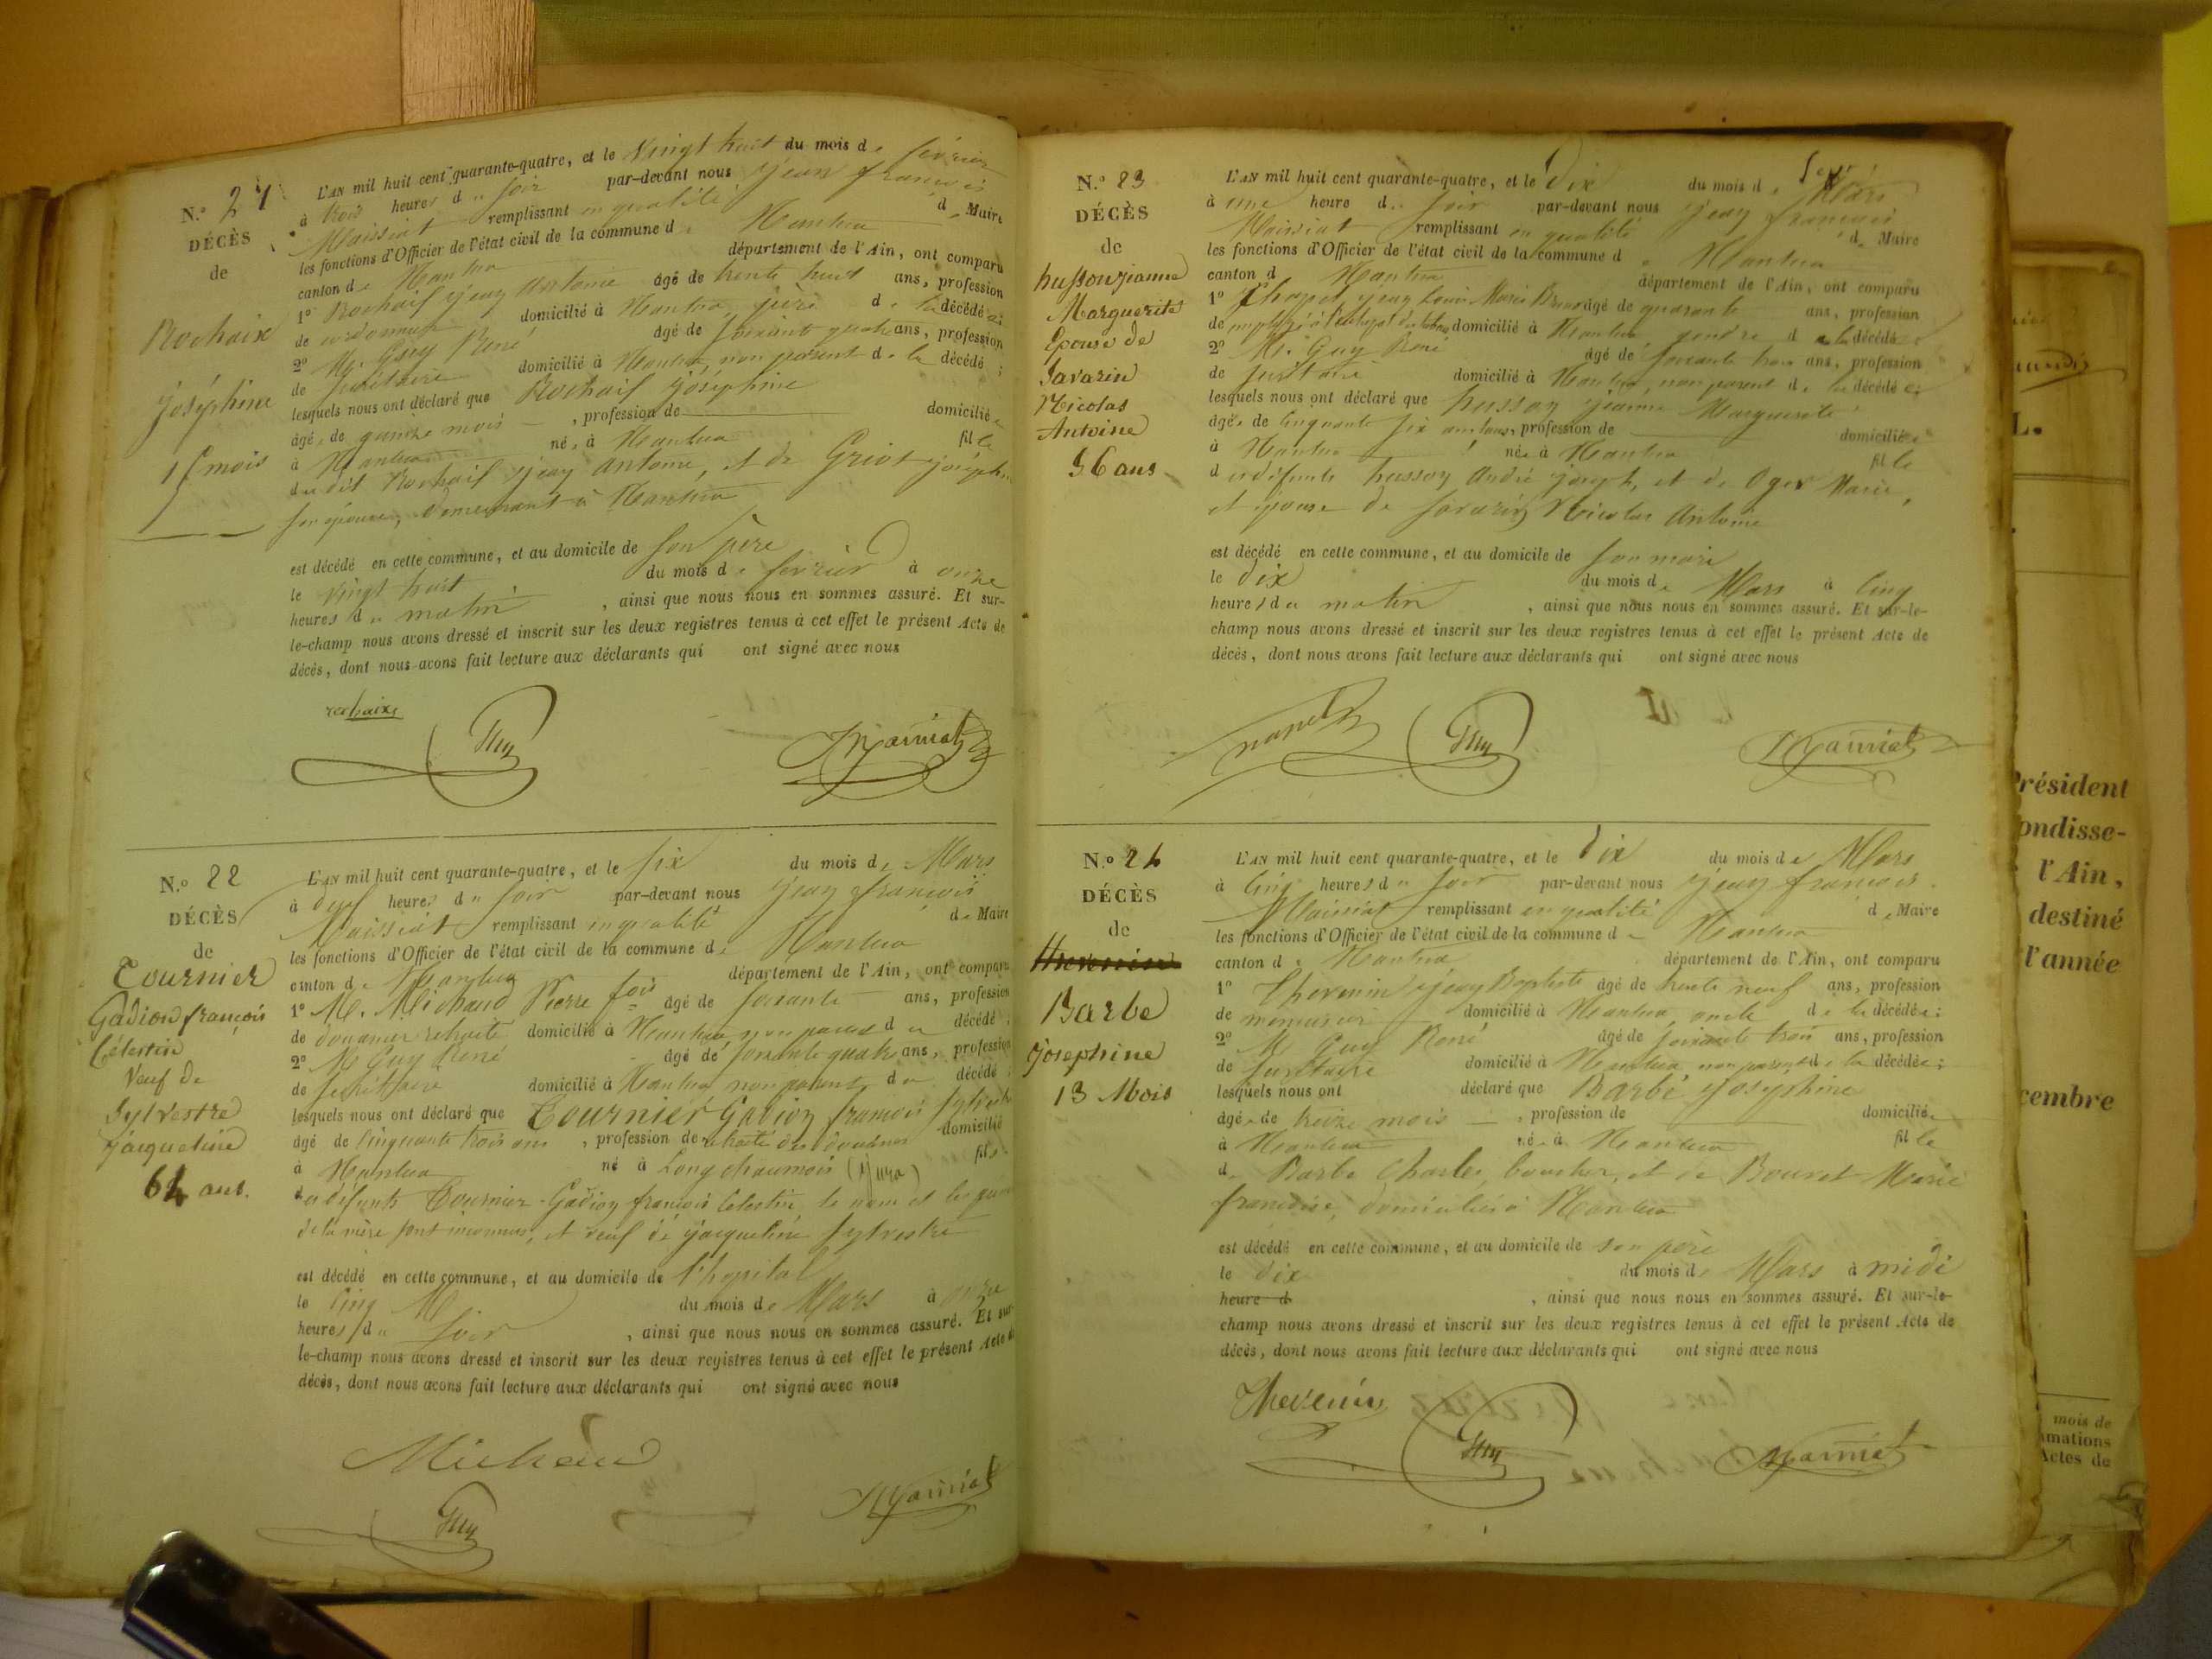 N.° 21
DÉCÈS
de
Rochaix
Joséphine
15 mois
L'AN mil huit cent quarante-quatre, et le Vingt huit du mois de février
à trois heures du soir par-devant nous Jean françois
Maissiat remplissant en qualité de Maire
les fonctions d'Officier de l'état civil de la commune de Nantua
canton de Nantua département de l'Ain, ont comparu
1° Rochaix Jean Antoine âgé de trente huit ans, profession
de cordonnier domicilié à Nantua, père de la décédée;
2° Mr. Guy René âgé de soixante quatre ans, profession
de domicilié à Nantua, non parent de la décédé;
lesquels nous ont déclaré que Rochaix Joséphine
âgée de quinze mois, profession de domiciliée
à Nantua née à Nantua fille
du dit Rochaix Jean Antoine, et de Griot Joséphine
son épouse, demeurant à Nantua
est décédé en cette commune, et au domicile de son père
le vingt huit du mois de février à onze
heures du matin, ainsi que nous nous en sommes assuré. Et sur-
le-champ nous avons dressé et inscrit sur les deux registres tenus à cet effet le présent Acte de
décès, dont nous avons fait lecture aux déclarants qui ont signé avec nous
rochaix Guy Maissiat
N.° 22
DÉCÈS
de
Tournier
Gadion françois
Célestin
Veuf de
Sylvestre
Jacqueline
64 ans.
L'AN mil huit cent quarante-quatre, et le six du mois de Mars
à deux heures du soir par-devant nous Jean françois
Maissiat remplissant en qualité de Maire
les fonctions d'Officier de l'état civil de la commune de Nantua
canton de Nantua département de l'Ain, ont comparu
1° M. Michaud Pierre âgé de soixante ans, profession
de douanier retraité domicilié à Nantua non parent du décédé;
2° Mr Guy René âgé de soixante quatre ans, profession
de domicilié à Nantua non parent du décédé;
lesquels nous ont déclaré que Tournier Gadion françois
âgé de cinquante trois ans, profession de retraité des douanes domicilié
à Nantua né à Longchaumois (Jura) fils
des défunts Tournier-Gadion françois Celestin, le nom et les
de la mère sont inconnus, et veuf de Jacqueline Sylvestre
est décédé en cette commune, et au domicile de l'hopital
le cinq du mois de Mars à onze
heures du soir, ainsi que nous nous en sommes assuré. Et sur-
le-champ nous avons dressé et inscrit sur les deux registres tenus à cet effet le présent Acte de
décès, dont nous avons fait lecture aux déclarants qui ont signé avec nous
Michaud
Guy Maissiat
N.° 23
DÉCÈS
de
husson Jeanne
Marguerite
Epouse de
Savarin
Nicolas
Antoine
56 ans
L'AN mil huit cent quarante-quatre, et le Dix du mois de Mars
à une heure du soir par-devant nous Jean françois
Maissiat remplissant en qualité de Maire
les fonctions d'Officier de l'état civil de la commune de Nantua
canton de Nantua département de l'Ain, ont comparu
1° Chapel Jean Louis Marie Bruno âgé de quarante ans, profession
de employé à l'entrepot des tabacs domicilié à Nantua gendre de la décédée
2° Mr. Guy René âgé de soixante trois ans, profession
de domicilié à Nantua, non parent de la décédée;
lesquels nous ont déclaré que husson Jeanne Marguerite
âgée de Cinquante six ans, profession de domiciliée
à Nantua née à Nantua fille
des défunts husson André Joseph, et de Oger Marie,
et épouse de Savarin Nicolas Antoine
est décédé en cette commune, et au domicile de son mari
le dix du mois de Mars à cinq
heures du matin, ainsi que nous nous en sommes assuré. Et sur-le-
champ nous avons dressé et inscrit sur les deux registres tenus à cet effet le présent Acte de
décès, dont nous avons fait lecture aux déclarants qui ont signé avec nous
Guy Maissiat
N.° 24
DÉCÈS
de
Thevenin
Barbe
Josephine
13 Mois
L'AN mil huit cent quarante-quatre, et le Dix du mois de Mars
à cinq heures du soir par-devant nous Jean françois
Maissiat remplissant en qualité de Maire
les fonctions d'Officier de l'état civil de la commune de Nantua
canton de Nantua département de l'Ain, ont comparu
1° Thevenin Jean Baptiste âgé de trente neuf ans, profession
de menuisier domicilié à Nantua, oncle de la décédée;
2° Mr Guy René âgé de soixante trois ans, profession
de domicilié à Nantua non parent de la décédée;
lesquels nous ont déclaré que Barbe Josephine
âgée de treize mois, profession de domiciliée
à Nantua née à Nantua fille
de Barbe Charles, boucher, et de Bouvet Marie
françoise, domiciliés à Nantua
est décédé en cette commune, et au domicile de son père
le dix du mois de Mars à midi
heure d, ainsi que nous nous en sommes assuré. Et sur-le-
champ nous avons dressé et inscrit sur les deux registres tenus à cet effet le présent Acte de
décès, dont nous avons fait lecture aux déclarants qui ont signé avec nous
Thevenin Guy Maissiat
L.
Président
ondisse-
l'Ain,
destiné
l'année
cembre
mois de
mations
Actes de